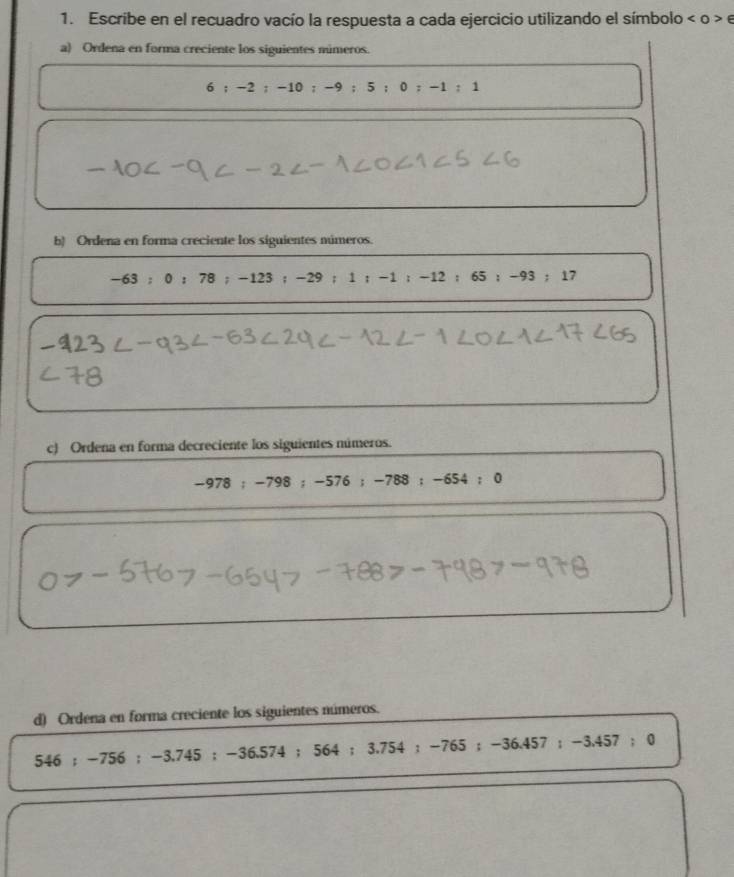 1. Escribe en el recuadro vacío la respuesta a cada ejercicio utilizando el símbolo < o > e
a) Ordena en forma creciente los siguientes números.
6 ; -2 ; -10 ; -9 ; 5 ; 0 ; -1 ; 1
-10< -9 < -2 < -1 < 0 < 1 < 5 < 6
b) Ordena en forma creciente los siguientes números.
-63 ; 0 ; 78 ; -123 ; -29 ; 1 ; -1 ; -12 ; 65 ; -93 ; 17
-123 < -93 < -63 < 29 < -12 < -1 < 0 < 1 < 17 < 65
< 78
c) Ordena en forma decreciente los siguientes números.
-978 ; -798 ; -576 ; -788 ; -654 ; 0
0 > -576 > -654 > -788 > -798 > -978
d) Ordena en forma creciente los siguientes números.
546 ; -756 ; -3.745 ; -36.574 ; 564 ; 3.754 ; -765 ; -36.457 ; -3.457 ; 0